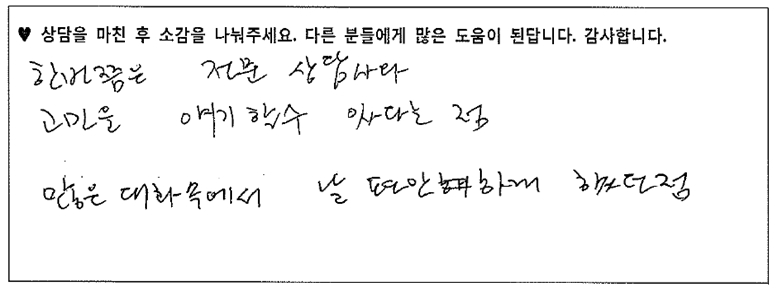 ♥ 상담을 마친 후 소감을 나눠주세요. 다른 분들에게 많은 도움이 된답니다. 감사합니다.
한번쯤은 전문 상담사다
고민을 얘기 할수 있다는 점
많은 대화속에서 날 편안하게 했던점